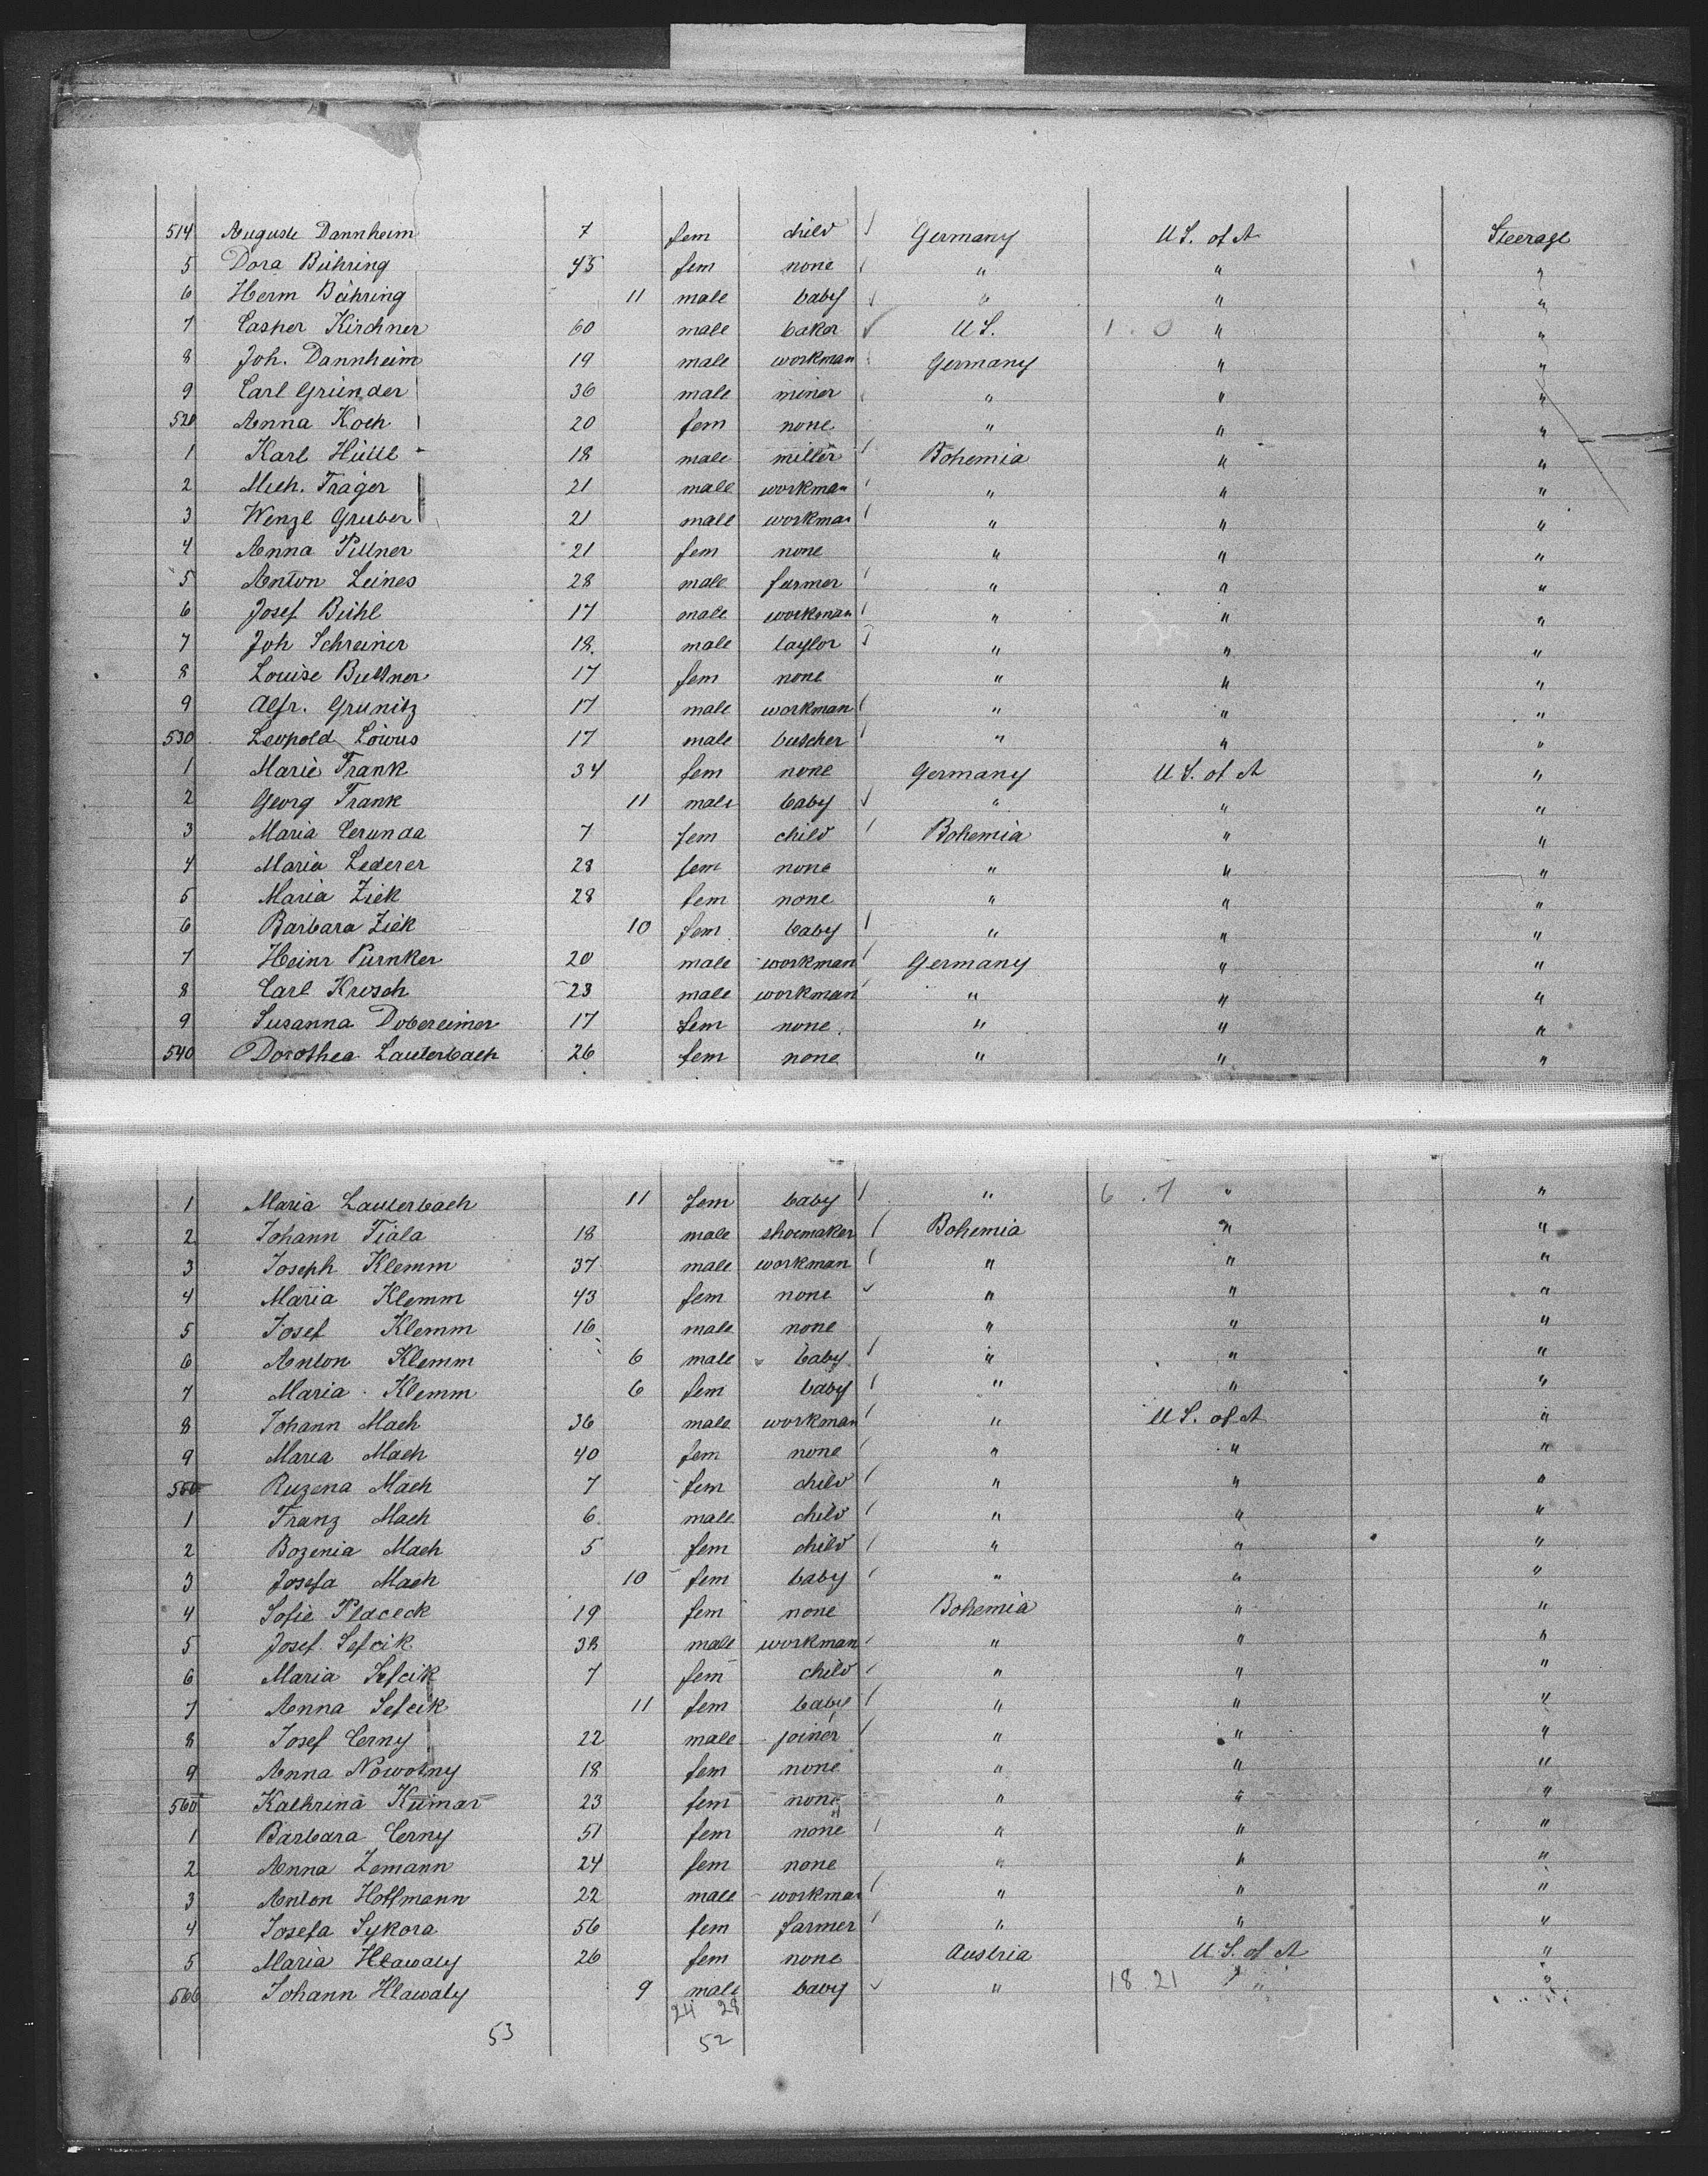 514 Auguste Dannheim 7 fem child Germany U S. of A Steerage
5 Dora Bühring 45 fem none " " "
6 Herm Bühring 11 male baby " " "
7 Casper Kirchner 60 male baker U S. 1 . 0 " "
8 Joh. Dannheim 19 male workman Germany " "
9 Carl Gründer 36 male miner " " "
520 Anna Koch 20 fem none " " "
1 Karl 18 male miller Bohemia " "
2 Mich. Träger 21 male workman " " "
3 Wenzl Gruber 21 male workman " " "
4 Anna Pillner 21 fem none " " "
5 Anton Leines 28 male farmer " " "
6 Josef Bühl 17 male workman " " "
7 Joh Schreiner 18. male taylor " " "
8 Louise Buttner 17 fem none " " "
9 Alfr. Grunitz 17 male workman " " "
530 Leopold Löwus 17 male butcher " " "
1 Marie Frank 34 fem none Germany U S. of A "
2 Georg Frank 11 male baby " " "
3 Maria Cerunda 7 fem child Bohemia " "
4 Maria Lederer 28 fem none " " "
5 Maria Ziek 28 fem none " " "
6 Barbara Ziek 10 fem baby " " "
7 Heinr Purnker 20 male workman Germany " "
8 Carl Kresch 23 male workman " " "
9 Susanna Dobereimer 17 fem none " " "
540 Dorothea Lauterbach 26 fem none " " "
1 Maria Lauterbach 11 fem baby " 6 . 7 " "
2 Johann Fiala 18 male shoemaker Bohemia " "
3 Joseph Klemm 37 male workman " " "
4 Maria Klemm 43 fem none " " "
5 Josef Klemm 16 male none " " "
6 Anton Klemm 6 male baby " " "
7 Maria Klemm 6 fem baby " " "
8 Johann Mach 36 male workman " U S. of A "
9 Maria Mach 40 fem none " " "
550 Ruzena Mach 7 fem child " " "
1 Franz Mach 6. male child " " "
2 Bozenia Mach 5 fem child " " "
3 Josefa Mach 10 fem baby " " "
4 Sofie Placeck 19 fem none Bohemia " "
5 Josef Sefcik 38 male workman " " "
6 Maria Sefcik 7 fem child " " "
7 Anna Sefcik 11 fem baby " " "
8 Josef Cerny 22 male joiner " " "
9 Anna Nowotny 18 fem none " " "
560 Kathrina Kumar 23 fem none " " "
1 Barbara Cerny 51 fem none " " "
2 Anna Zemann 24 fem none " " "
3 Anton Hoffmann 22 male workman " " "
4 Josefa Sykora 56 fem farmer " " "
5 Maria Hlawaty 26 fem none Austria U. S. of A "
566 Johann Hlawaty 9 male baby " 18 . 21 " "
24 28
53 52